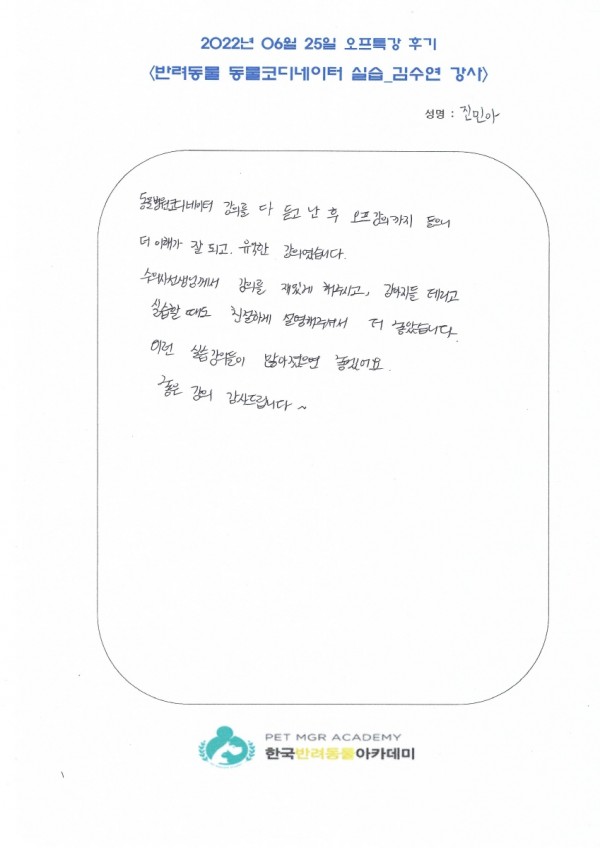 2022년 06월 25일 오프특강 후기
<반려동물 동물코디네이터 실습_김수연 강사>
성명 : 진민아
동물병원코디네이터 강의를 다 듣고 난 후 오프강의까지 들으니
더 이해가 잘 되고, 유익한 강의였습니다.
수의사선생님께서 강의를 재밌게 해주시고, 강아지들 데리고
실습할 때도 친절하게 설명해주셔서 더 좋았습니다.
이런 실습강의들이 많아졌으면 좋겠어요.
좋은 강의 감사드립니다~
PET MGR ACADEMY
한국반려동물아카데미